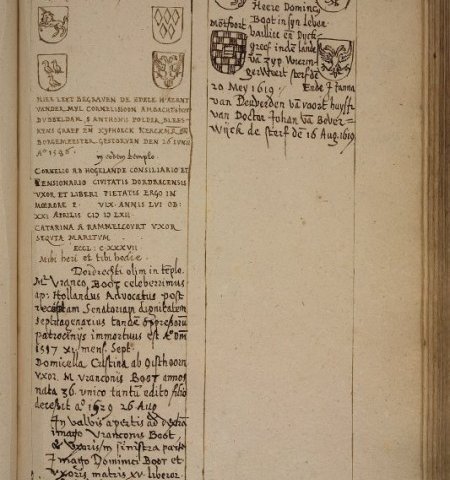 HIER LEYT BEGRAVEN DE EDELE H AERNT
VANDER MYL CORNELISSOON AMBACHTSHEER
DUBBELDAM S ANTHONIS POLDER BLEES-
KENS GRAEF EN KERCKM EN
BORGEMEESTER GESTORVEN DEN 26 IUNII
Aº 1596.
in eodem templo.
CORNELIO AB HOGELANDE CONSILIARIO ET
PENSIONARIO CIVITATIS DORDRACENSIS
UXOR ET LIBERI PIETATIS ERGO IN
MOERORE P. VIX. ANNIS LVI OB.
XXI APRILIS CIƆ IƆ LXII
CATARINA A RAMMELCOURT UXOR
SEQUTA MARITUM
ECCL. C. XXXVII
Mihi heri et tibi hodie.
Dordrechti olim in templo.
Mr Vranco BOOT celeberrimus
ap. Hollandus Advocatus post
Senatoriam dignitatem
septuagenarius tandem
patrocinijs immortuus est Aº Dni
1517 XI mens. Sept.
Domicella Cristina ab Oisthoorn
VXOR. M Vranconis BOOT annos
nata 36. unico tantu edito filio
decessit aº 1529 26 Aug
In valvis apertis ad dextra
imago Vranconis Boot,
& Uxoris in sinistra parte
Imago Dominici BOOT et
Uxoris matris XV. liberor.
Heere Domini
Boot in syn leven
bailliu en Dyck
greef inde lande
va Zyp
sterf de
Montfoort
20 Mey 1619. Ende J fanna
van Deuverden va voort huysse
van Doctor Johan va Bever=
Wijck de sterf de 16 Aug. 1619.